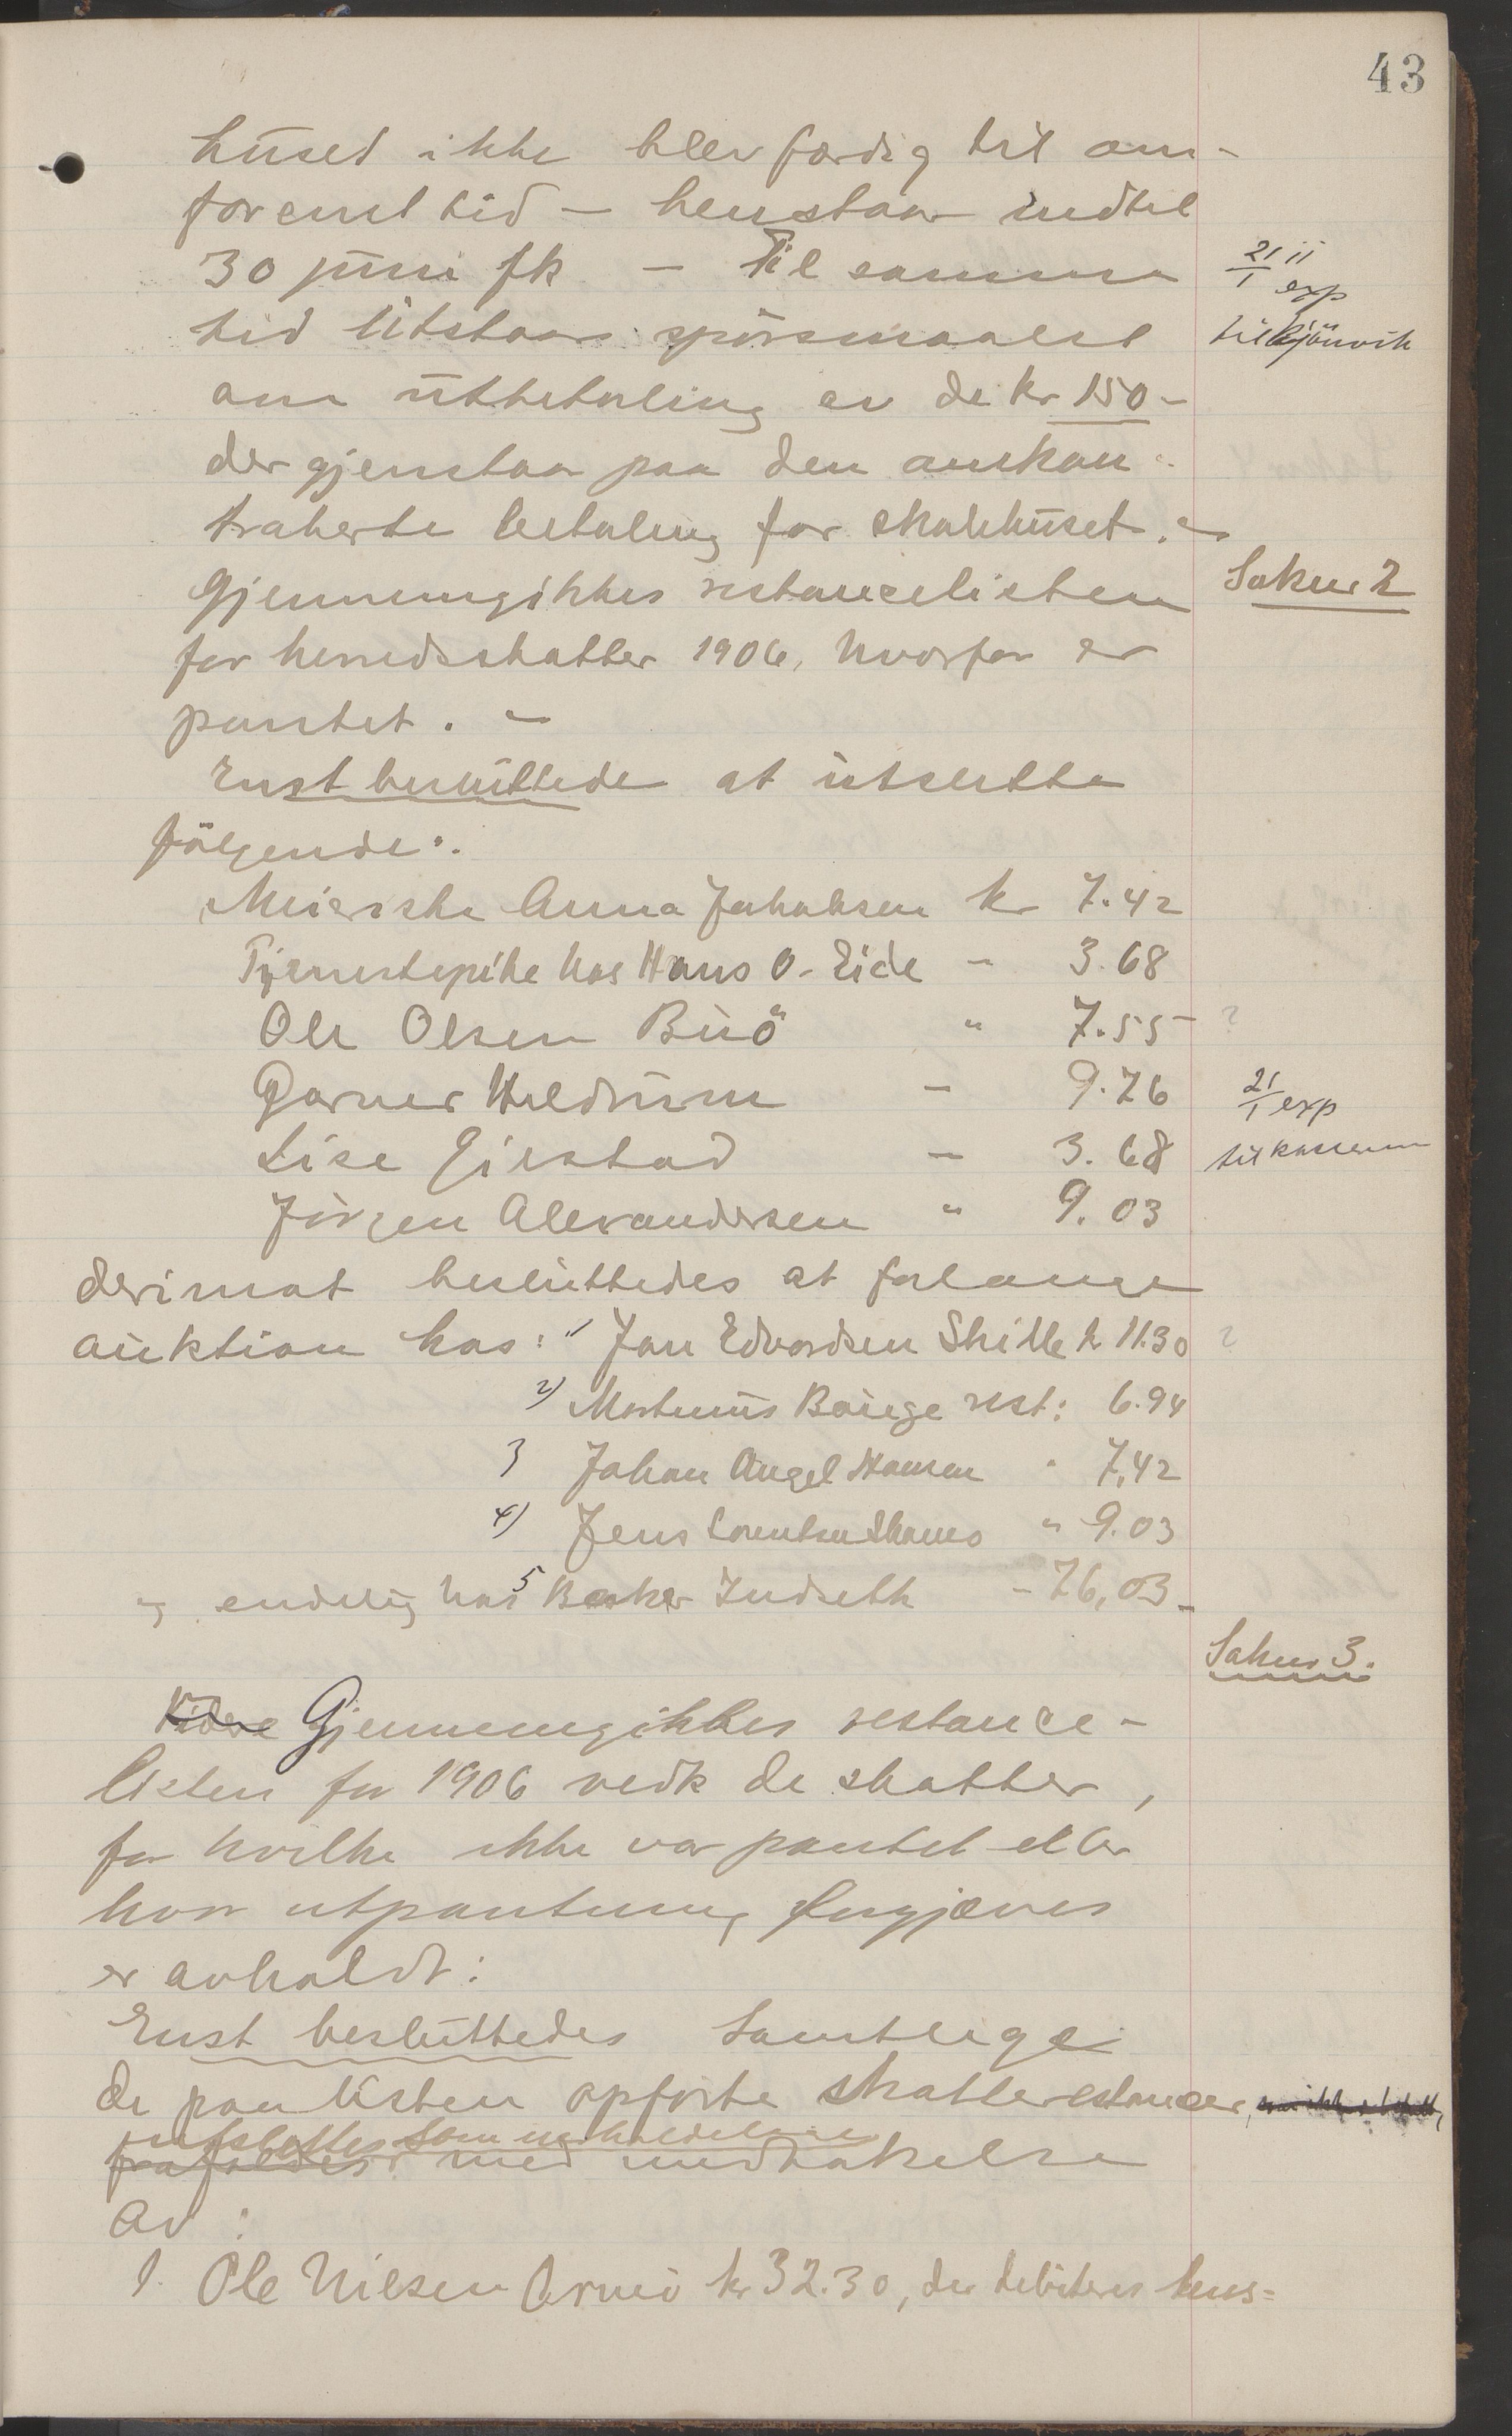 43
huset ikke blev færdig til om-
forenet tid – henstaar indtil
30 juni fk – Til samme
21/1 11 exp
tid utstaar spörsmaalet
til Kjönvik
om utbetaling av de kr 150-
der gjenstaar paa den omkon-
traherte betaling for skolehuset. -
Sak nr 2
Gjennemgikkes restancelisten
for herredsskatter 1906, hvorfor er
pantet. -
Enst besluttede at utsætte
følgende:
Meierske Anna Jakobsen kr 7.42
Tjenestepike hos Hans O. Eide - 3.68
Ole Olsen Buö " 7.55 ?
Garver Heldrum - 9.76
21/1 exp
Lise Gierstad - 3.68
til kasseren
Jörgen Alexandersen " 9.03
derimot besluttedes at forlange
auktion hos: 1) Jan Edvardsen Skille kr 11.30 ?
2) Martinus Bauge rest: 6.94
3 Johan Angel Hansen " 7,42
4) Jens Lorentsen " 9.03
og endelig hos 5 Baker Indseth - 76,03 -
Sak nr 3.
Videre Gjennemgikkes restance-
listen for 1906 vedk de skatter,
for hvilke ikke var pantet eller
hvor utpantning forgjæves
er avholdt:
Enst besluttedes Samtlige
de paa listen opförte skatterestancer,
utslettes som uerholdelige
frafaldes med undtakelse
av:
1. Ole Nilsen Arnö kr 32.30, der debiteres hos-